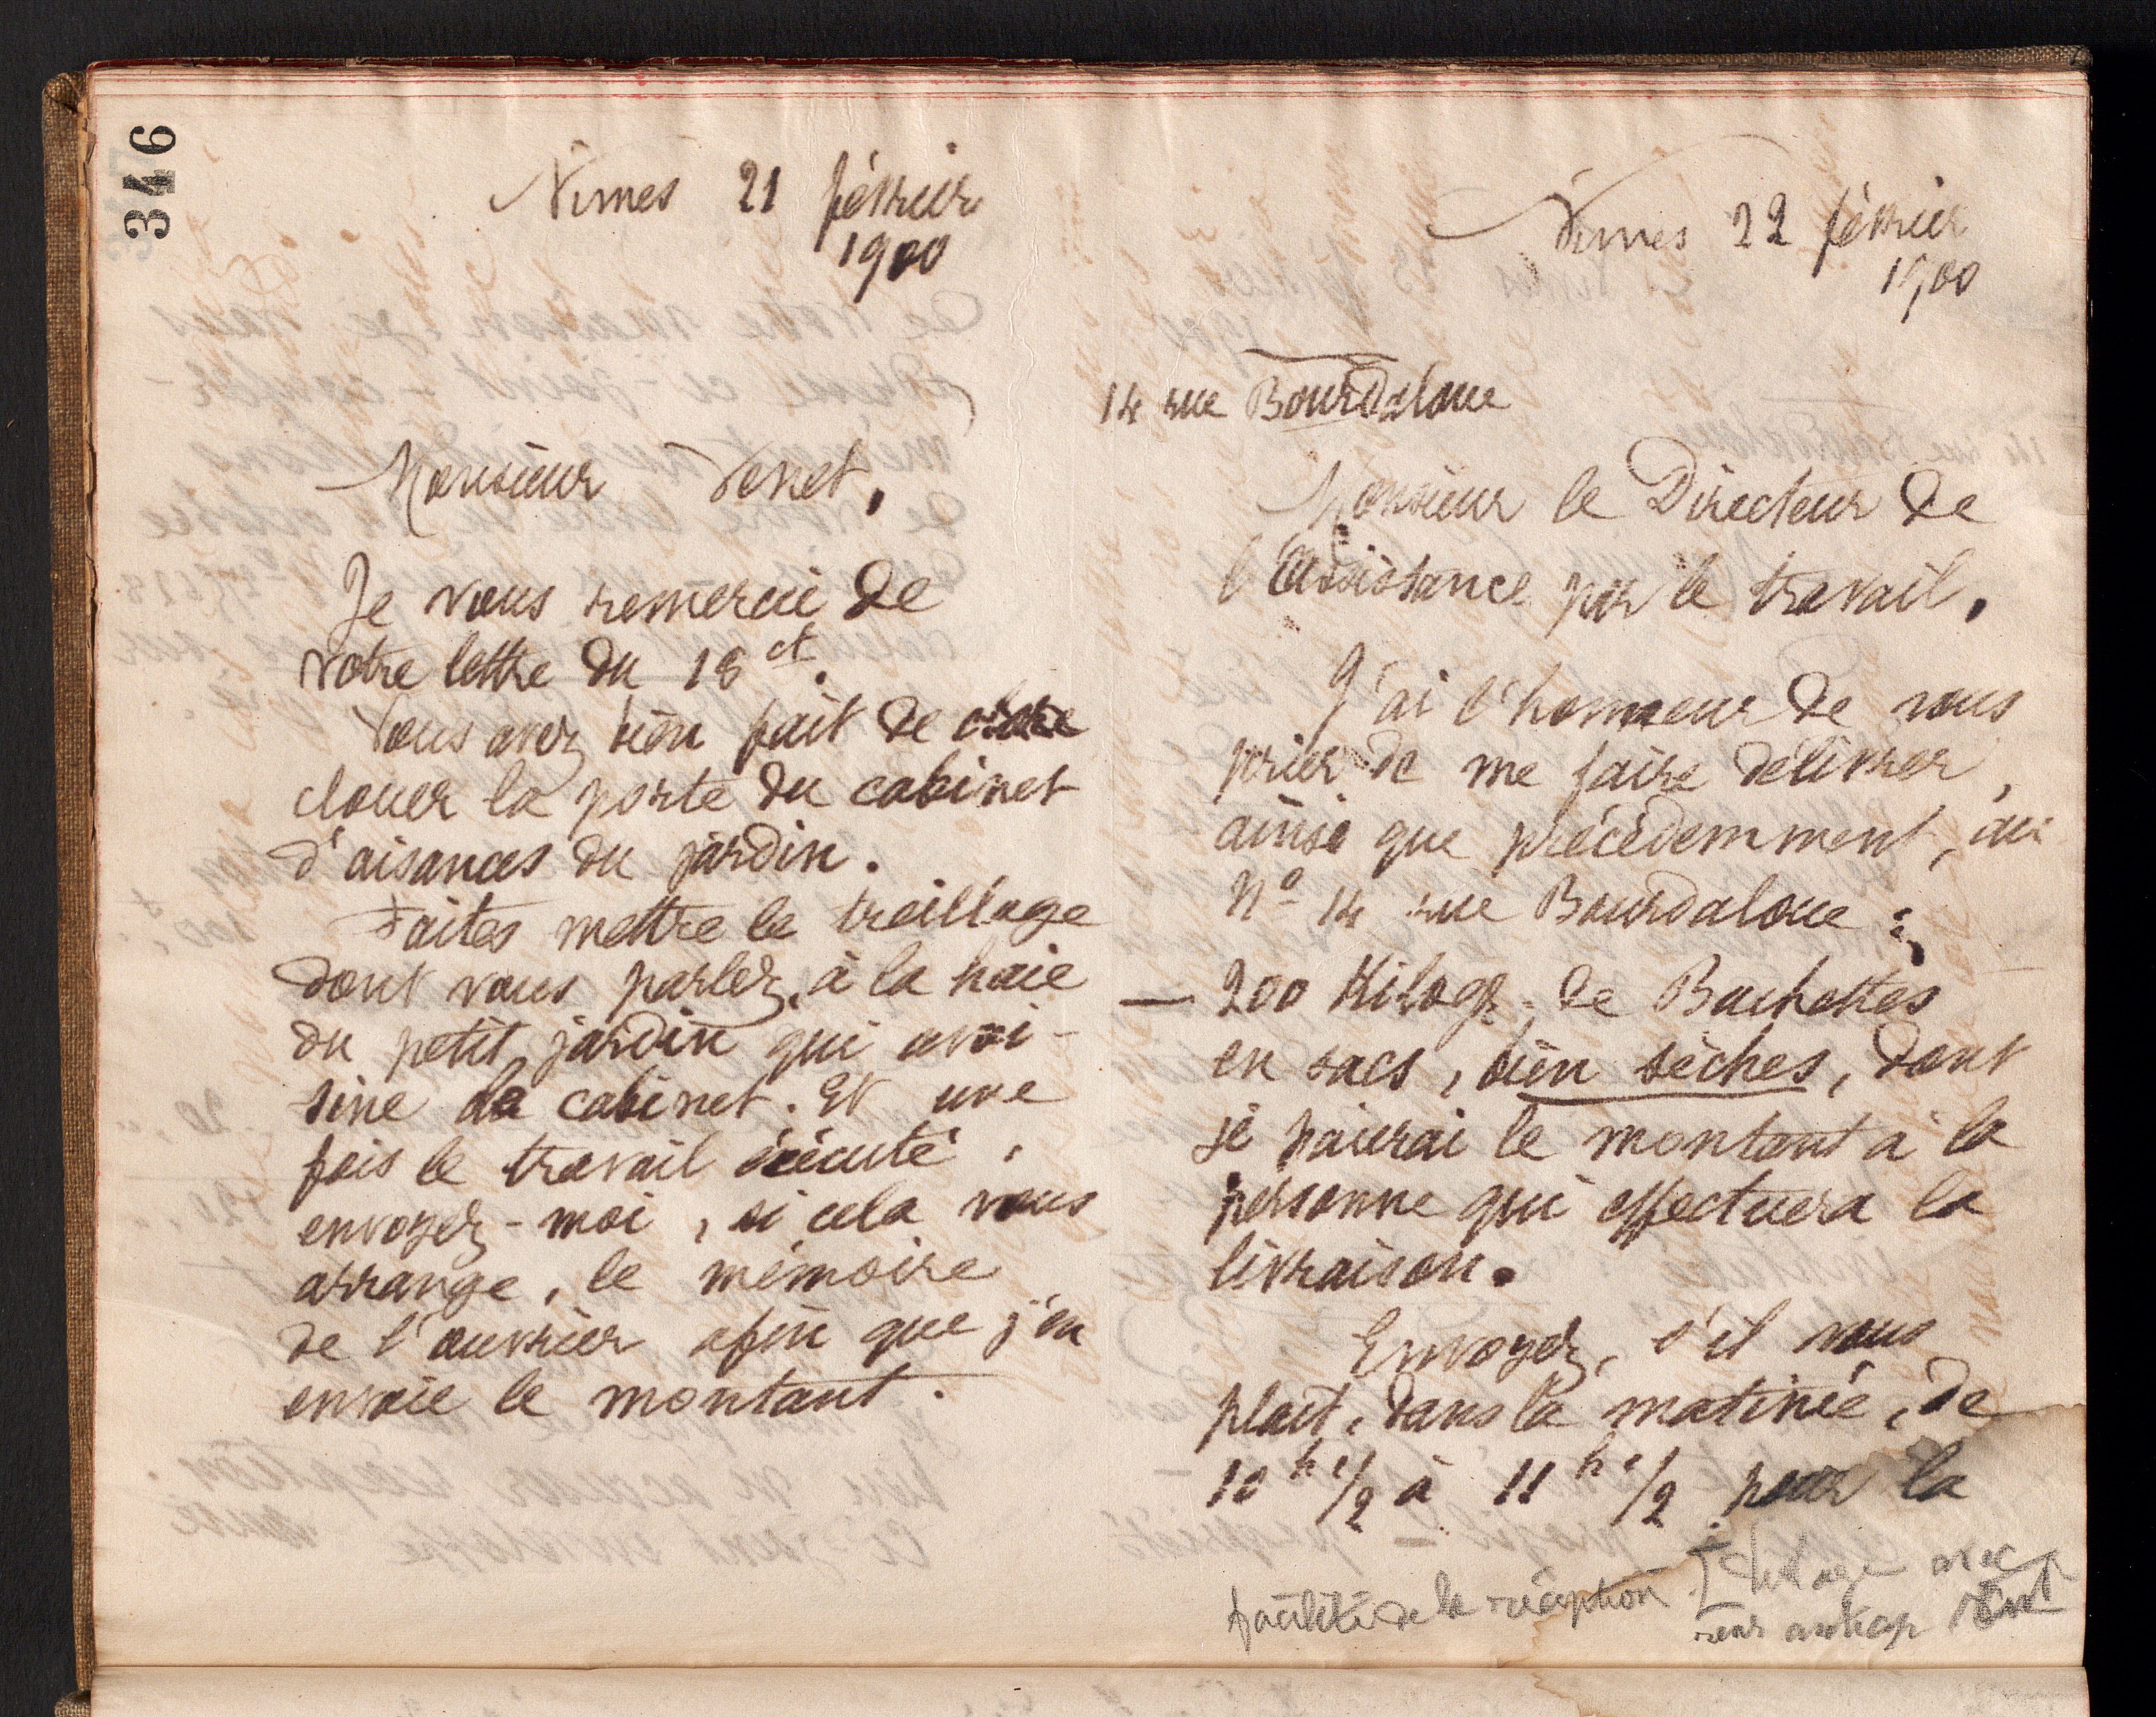 346
Nimes 21 février
1900
Monsieur Venet,
Je vous remercie de
votre lettre du 18 ct.
Vous avez bien fait de
clouer la porte du cabinet
d'aisances du jardin.
Faites mettre le treillage
dont vous parlez, à la haie
du petit jardin qui avoi-
sine le cabinet. Et une
fois le travail éxécuté,
envoyez-moi, si cela vous
arrange, le mémoire
de l'ouvrier afin que j'en
envoie le montant.
Nimes 22 février
1900
14 rue Bourdaloue
Monsieur le Directeur de
l'Assistance par le travail.
J'ai l'honneur de vous
prier de me faire délivrer,
ainsi que précédemment, au
No 14 rue Bourdaloue :
— 200 Kilogr. de Buchettes
en sacs, bien sèches, dont
je paierai le montant à la
personne qui effectuera la
livraison.
Envoyez, s'il vous
plait, dans la matinée, de
10 h 1/2 à 11 h 1/2 pour la
facilité de la réception